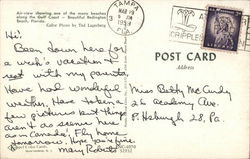 Air-view showing one of the many beaches
along the Gulf Coast — Beautiful Redington
Beach, Florida.
Color Photo by Ted Lagerberg
TAMPA
MAR 19
3 PM
1958
FLA.
CRIPPLED
Hi!
Been down here for
a week's vacation &
rest with my parents.
Have had wonderful
weather. Have taken a
few pictures but things
aren't as scenic here
as in Canada! Fly home
tomorrow. Hope you're fine.
Mary Roberts
POST CARD
Address
Miss Betty McCurdy
26 Academy Ave.
Pittsburgh 28, Pa.